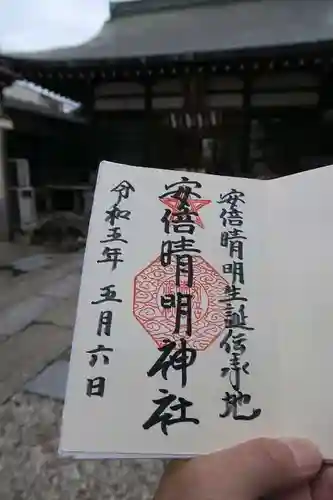 安倍晴明生誕伝承地
安倍晴明神社
令和五年五月六日